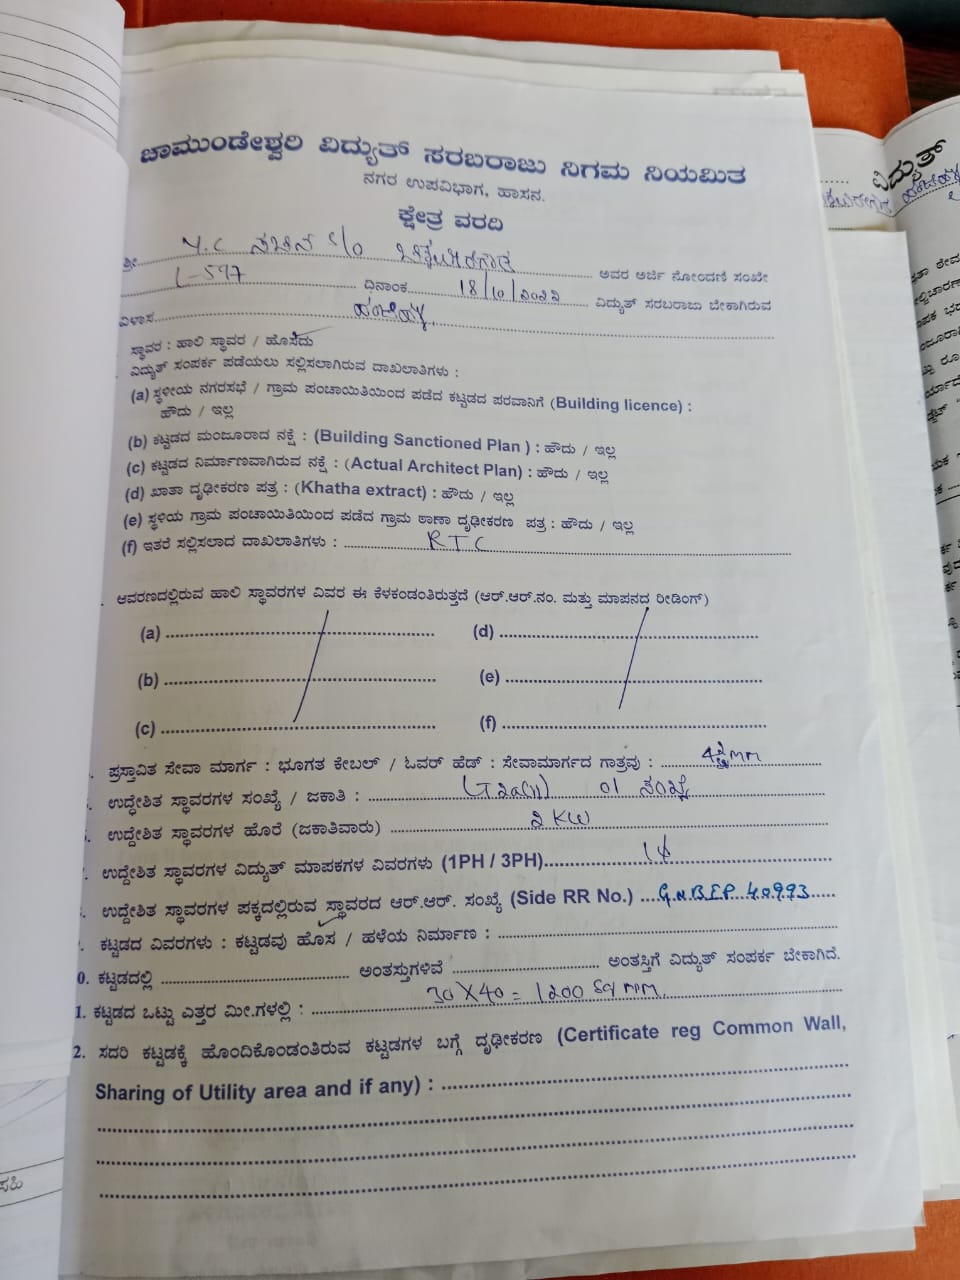 ಚಾಮುಂಡೇಶ್ವರಿ ವಿದ್ಯುತ್ ಸರಬರಾಜು ನಿಗಮ ನಿಯಮಿತ
ನಗರ ಉಪವಿಭಾಗ, ಹಾಸನ.
ಕ್ಷೇತ್ರ ವರದಿ
ಶ್ರೀ. Y.C ಸಚಿನ S/o ಅವರ ಅರ್ಜಿ ನೋಂದಣಿ ಸಂಖೇ
L-597 ದಿನಾಂಕ 18/10/2022 ವಿದ್ಯುತ್ ಸರಬರಾಜು ಬೇಕಾಗಿರುವ
ವಿಳಾಸ
ಸ್ಥಾವರ : ಹಾಲಿ ಸ್ಥಾವರ / ಹೊಸದು
ವಿದ್ಯುತ್ ಸಂಪರ್ಕ ಪಡೆಯಲು ಸಲ್ಲಿಸಲಾಗಿರುವ ದಾಖಲಾತಿಗಳು :
(a) ಸ್ಥಳೀಯ ನಗರಸಭೆ / ಗ್ರಾಮ ಪಂಚಾಯಿತಿಯಿಂದ ಪಡೆದ ಕಟ್ಟಡದ ಪರವಾನಿಗೆ (Building licence) :
ಹೌದು / ಇಲ್ಲ
(b) ಕಟ್ಟಡದ ಮಂಜೂರಾದ ನಕ್ಷೆ : (Building Sanctioned Plan ) : ಹೌದು / ಇಲ್ಲ
(c) ಕಟ್ಟಡದ ನಿರ್ಮಾಣವಾಗಿರುವ ನಕ್ಷೆ : (Actual Architect Plan) : ಹೌದು / ಇಲ್ಲ
(d) ಖಾತಾ ದೃಢೀಕರಣ ಪತ್ರ : (Khatha extract) : ಹೌದು / ಇಲ್ಲ
(e) ಸ್ಥಳಿಯ ಗ್ರಾಮ ಪಂಚಾಯಿತಿಯಿಂದ ಪಡೆದ ಗ್ರಾಮ ಠಾಣಾ ದೃಢೀಕರಣ ಪತ್ರ : ಹೌದು / ಇಲ್ಲ
(f) ಇತರೆ ಸಲ್ಲಿಸಲಾದ ದಾಖಲಾತಿಗಳು : RTC
ಆವರಣದಲ್ಲಿರುವ ಹಾಲಿ ಸ್ಥಾವರಗಳ ವಿವರ ಈ ಕೆಳಕಂಡಂತಿರುತ್ತದೆ (ಆರ್.ಆರ್.ನಂ. ಮತ್ತು ಮಾಪನದ ರೀಡಿಂಗ್)
(a) (d)
(b) (e)
(c) (f)
ಪ್ರಸ್ತಾವಿತ ಸೇವಾ ಮಾರ್ಗ : ಭೂಗತ ಕೇಬಲ್ / ಓವರ್ ಹೆಡ್ : ಸೇವಾಮಾರ್ಗದ ಗಾತ್ರವು :
ಉದ್ಧೇಶಿತ ಸ್ಥಾವರಗಳ ಸಂಖ್ಯೆ / ಜಕಾತಿ : 01 ಸಂಖ್ಯೆ
ಉದ್ದೇಶಿತ ಸ್ಥಾವರಗಳ ಹೊರೆ (ಜಕಾತಿವಾರು) 2 KW
ಉದ್ದೇಶಿತ ಸ್ಥಾವರಗಳ ವಿದ್ಯುತ್ ಮಾಪಕಗಳ ವಿವರಗಳು (1PH / 3PH) 1ϕ
ಉದ್ದೇಶಿತ ಸ್ಥಾವರಗಳ ಪಕ್ಕದಲ್ಲಿರುವ ಸ್ಥಾವರದ ಆರ್.ಆರ್. ಸಂಖ್ಯೆ (Side RR No.) GNBEP 40993
ಕಟ್ಟಡದ ವಿವರಗಳು : ಕಟ್ಟಡವು ಹೊಸ / ಹಳೆಯ ನಿರ್ಮಾಣ :
0. ಕಟ್ಟಡದಲ್ಲಿ ಅಂತಸ್ತುಗಳಿವೆ ಅಂತಸ್ತಿಗೆ ವಿದ್ಯುತ್ ಸಂಪರ್ಕ ಬೇಕಾಗಿದೆ.
1. ಕಟ್ಟಡದ ಒಟ್ಟು ಎತ್ತರ ಮೀ.ಗಳಲ್ಲಿ : 30 X 40 = 1200 Sq mm.
2. ಸದರಿ ಕಟ್ಟಡಕ್ಕೆ ಹೊಂದಿಕೊಂಡಂತಿರುವ ಕಟ್ಟಡಗಳ ಬಗ್ಗೆ ದೃಢೀಕರಣ (Certificate reg Common Wall,
Sharing of Utility area and if any) :